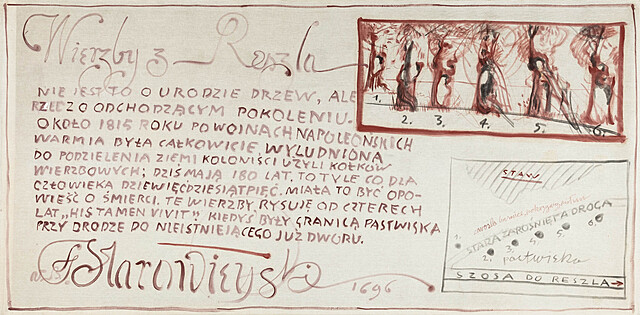 Wierzby z Reszla
NIE JEST TO O URODZIE DRZEW, ALE
RZECZ O ODCHODZĄCYM POKOLENIU.
OKOŁO 1815 ROKU PO WOJNACH NAPOLEOŃSKICH
WARMIA BYŁA CAŁKOWICIE WYLUDNIONA
DO PODZIELENIA ZIEMI KOLONIŚCI UŻYLI KOŁKÓW
WIERZBOWYCH; DZIŚ MAJĄ 180 LAT, TO TYLE CO DLA
CZŁOWIEKA DZIEWIĘĆDZIESIĄTPIĘĆ. MIAŁA TO BYĆ OPO-
WIEŚĆ O ŚMIERCI. TE WIERZBY, RYSUJE OD CZTERECH
LAT, „HIS TAMEN VIVIT". KIEDYŚ BYŁY GRANICĄ PASTWISKA
PRZY DRODZE DO NIEISTNIEJĄCEGO JUŻ DWORU.
F Starowieyski
1696
1. 2. 3. 4. 5. 6.
STAW
STARA ZAROŚNIĘTA DROGA
1. 2. 3. 4. 5. 6.
pastwisko
SZOSA DO RESZLA